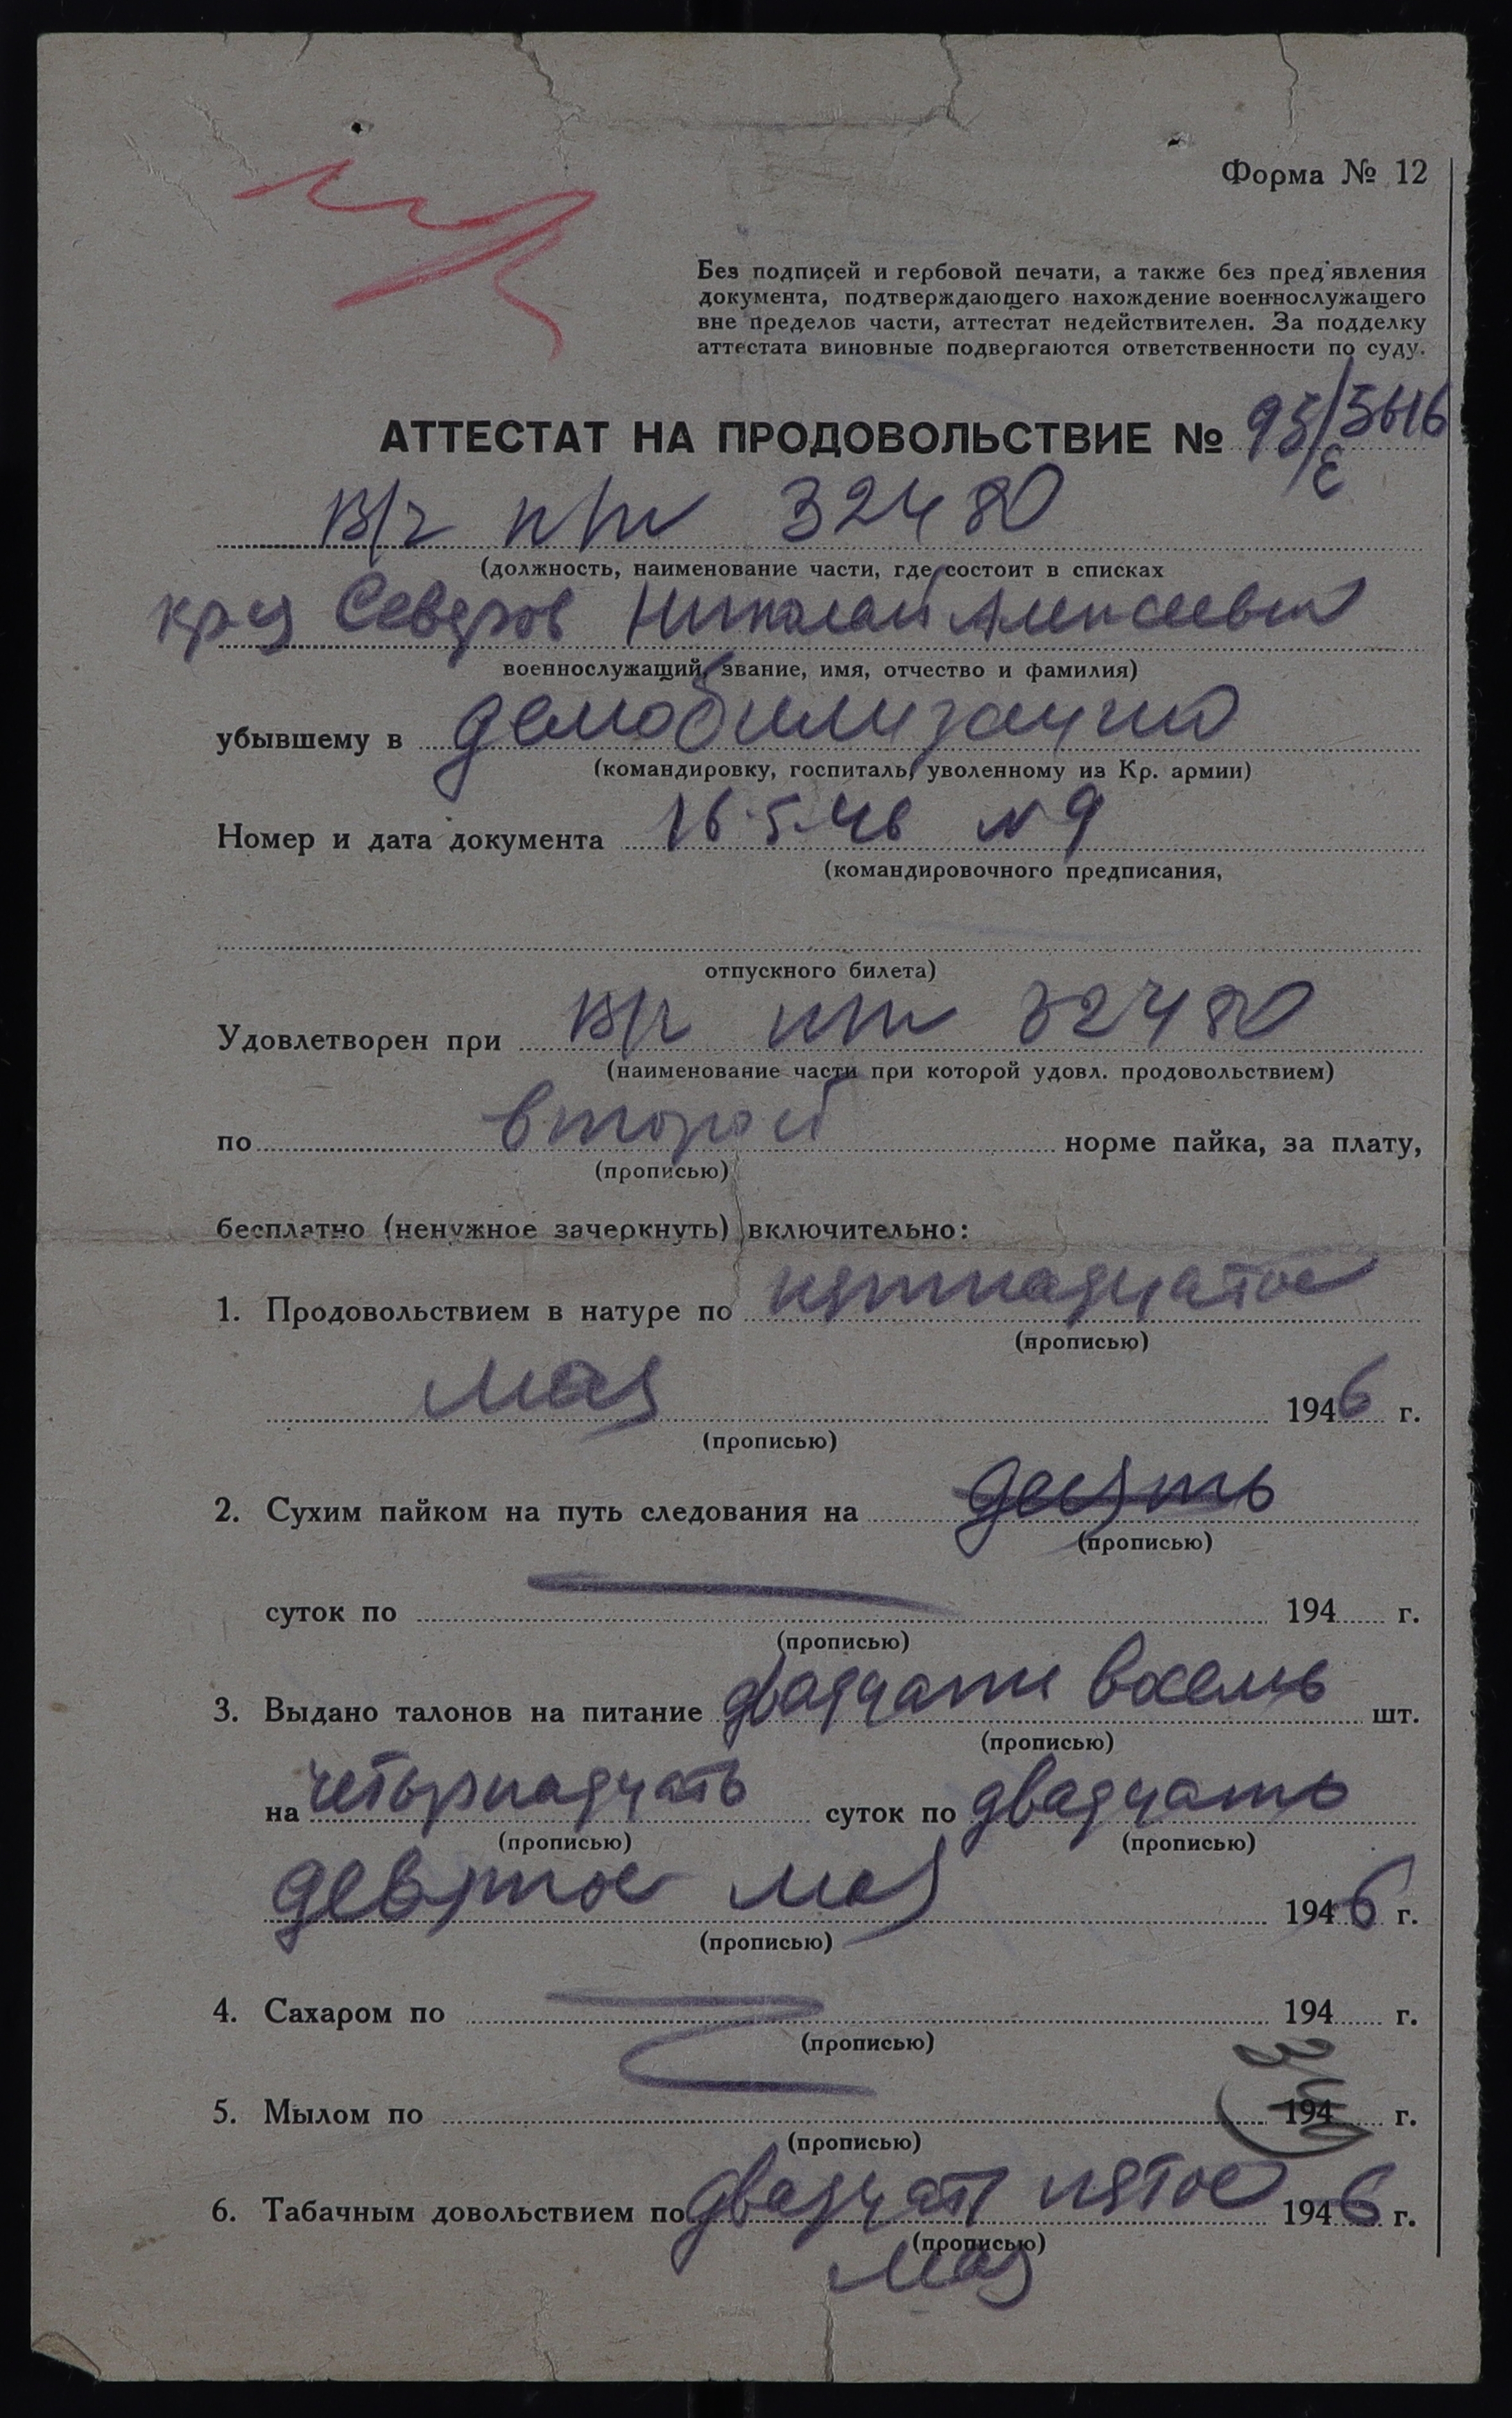 Форма № 12
Без подписей и гербовой печати, а также без пред'явления
документа, подтверждающего нахождение военнослужащего
вне пределов части, аттестат недействителен. За подделку
аттестата виновные подвергаются ответственности по суду.
АТТЕСТАТ НА ПРОДОВОЛЬСТВИЕ №
В/ч п/п 32480
(должность, наименование части, где состоит в списках
кр-ц Северов Николай Алексеевич
военнослужащий, звание, имя, отчество и фамилия)
убывшему в демобилизацию
(командировку, госпиталь, уволенному из Кр. армии)
Номер и дата документа 16.5.46 N 9
(командировочного предписания,
отпускного билета)
Удовлетворен при В/ч пп 32480
(наименование части при которой удовл. продовольствием)
по второй норме пайка, за плату,
(прописью)
бесплатно (ненужное зачеркнуть) включительно:
1. Продовольствием в натуре по пятнадцатое
(прописью)
мая 1946 г.
(прописью)
2. Сухим пайком на путь следования на десять
(прописью)
суток по 194 г.
(прописью)
3. Выдано талонов на питание двадцати восемь шт.
(прописью)
на четырнадцать суток по двадцать
(прописью) (прописью)
девятое мая 1946 г.
(прописью)
4. Сахаром по 194 г.
(прописью)
5. Мылом по 194 г.
(прописью)
6. Табачным довольствием по двадцать пятое 1946 г.
(прописью)
мая